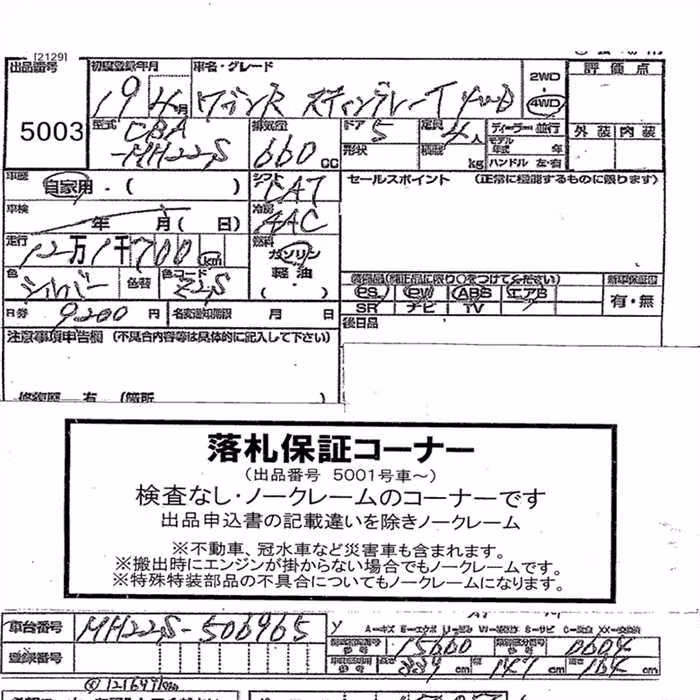 [2129]
出品番号 初度登録年月 車名・グレード 2WD 評価点
19年4月 ワゴンR スティングレーT 4WD 4WD
5003 型式 CBA-MH22S 排気量 660cc ドア 5 定員 4人 ディーラー・並行 外装 内装
形状 積載 kg モデル年式 年 ハンドル 左・右
車歴 自家用・( ) シフト CAT セールスポイント (正常に機能するものに限ります)
車検 年 月( 日) 冷房 AAC
走行 12万1千700km 燃料 ガソリン
色 シルバー 色替 色コード Z2S 軽油 ( ・ ) 装備品(純正品に限り○をつけてください) 新車保証書
PS PW ABS エアB 有・無
R券 9,200円 名変通知期限 月 日 SR ナビ TV
注意事項申告欄 (不具合内容等は具体的に記入して下さい) 後日品
修復歴 有 (箇所
落札保証コーナー
(出品番号 5001号車～)
検査なし・ノークレームのコーナーです
出品申込書の記載違いを除きノークレーム
※不動車、冠水車など災害車も含まれます。
※搬出時にエンジンが掛からない場合でもノークレームです。
※特殊特装部品の不具合についてもノークレームになります。
車台番号 MH22S-506965
15600 0604
登録番号 339 cm 147 cm 164 cm